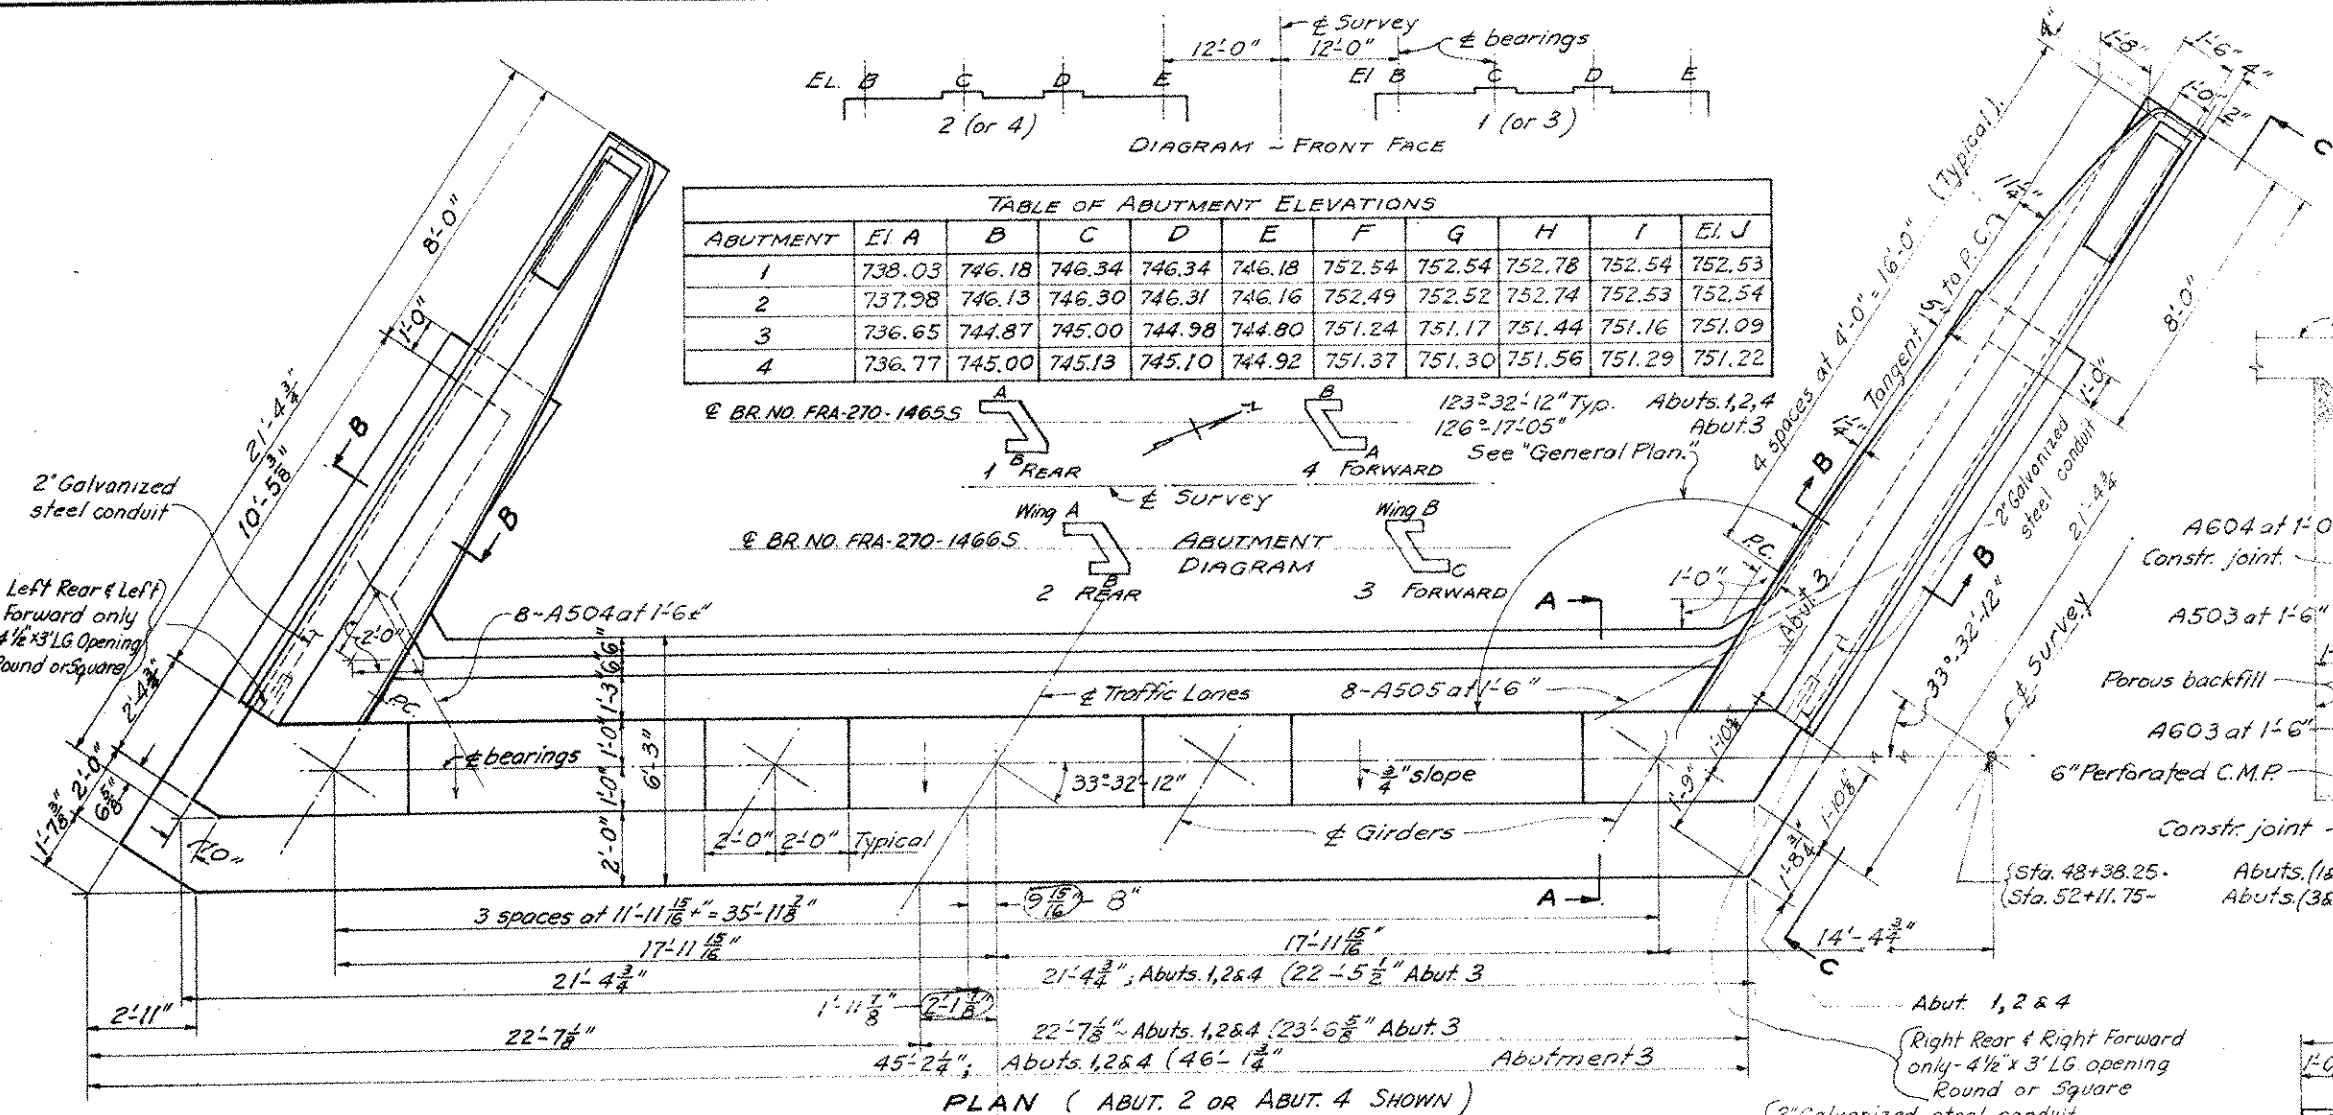 ℄ Survey
12'-0" 12'-0" ℄ bearings
EL. B C D E
El B C D E
2 (or 4)
1 (or 3)
DIAGRAM ~ FRONT FACE
TABLE OF ABUTMENT ELEVATIONS
ABUTMENT El. A B C D E F G H I El. J
1 738.03 746.18 746.34 746.34 746.18 752.54 752.54 752.78 752.54 752.53
2 737.98 746.13 746.30 746.31 746.16 752.49 752.52 752.74 752.53 752.54
3 736.65 744.87 745.00 744.98 744.80 751.24 751.17 751.44 751.16 751.09
4 736.77 745.00 745.13 745.10 744.92 751.37 751.30 751.56 751.29 751.22
℄ BR. NO. FRA-270-1465S
A
B
1 REAR
B
A
4 FORWARD
123°-32'-12" Typ. Abuts. 1,2,4
126°-17'-05" Abut. 3
See "General Plan."
℄ Survey
℄ BR. NO. FRA-270-1466S
Wing A
B
2 REAR
ABUTMENT
DIAGRAM
Wing B
C
3 FORWARD
8'-0"
1'-0"
21'-4 3/4"
10'-5 3/8"
B
B
2" Galvanized
steel conduit
Left Rear & Left
Forward only
4½"x3' LG. Opening
Round or Square
2'-4 3/4"
2'-0"
6 5/8"
1'-7 3/8"
2'-0"
P.C.
8-A504 at 1'-6±"
6"
6"
1'-3"
1'-0"
1'-0"
2'-0"
6'-3"
℄ bearings
℄ Traffic Lanes
8-A505 at 1'-6"
33°-32'-12"
3/4" slope
2'-0" 2'-0" Typical
℄ Girders
3 spaces at 11'-11 15/16+" = 35'-11 7/8"
9 15/16" - 8"
17'-11 15/16"
17'-11 15/16"
14'-4 3/4"
21'-4 3/4"
21'-4 3/4"; Abuts. 1,2&4 (22'-5 1/2" Abut. 3
2'-11"
1'-11 7/8"
2'-1 7/8"
22'-7 1/8"
22'-7 1/8" ~ Abuts. 1,2&4 (23'-6 5/8" Abut. 3
45'-2 1/4"; Abuts. 1,2&4 (46'-1 3/4" Abutment 3
PLAN ( ABUT. 2 OR ABUT. 4 SHOWN )
4"
1'-8"
1'-6"
4"
1'-0"
2"
C
4 spaces at 4'-0" = 16'-0" (Typical).
Tangent
to P.C.
8'-0"
1'-0"
B
2" Galvanized
steel conduit
21'-4 3/4"
B
P.C.
1'-0"
Abut. 3
A
A
33°-32'-12"
℄ Survey
1'-10 5/8"
1'-9"
1'-10 5/8"
1'-8 3/4"
C
A604 at 1'-0
Constr. joint.
A503 at 1'-6"
Porous backfill
A603 at 1'-6"
6" Perforated C.M.P.
Constr. joint
Sta. 48+38.25- Abuts. (1&
Sta. 52+11.75- Abuts. (3&
Abut. 1, 2 & 4
Right Rear & Right Forward
only - 4½" x 3' LG. opening
Round or Square
2" Galvanized steel conduit